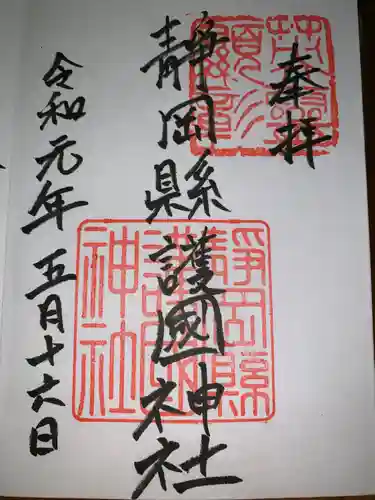 奉拝
静岡縣護國神社
令和元年五月十六日
静岡縣護國神社